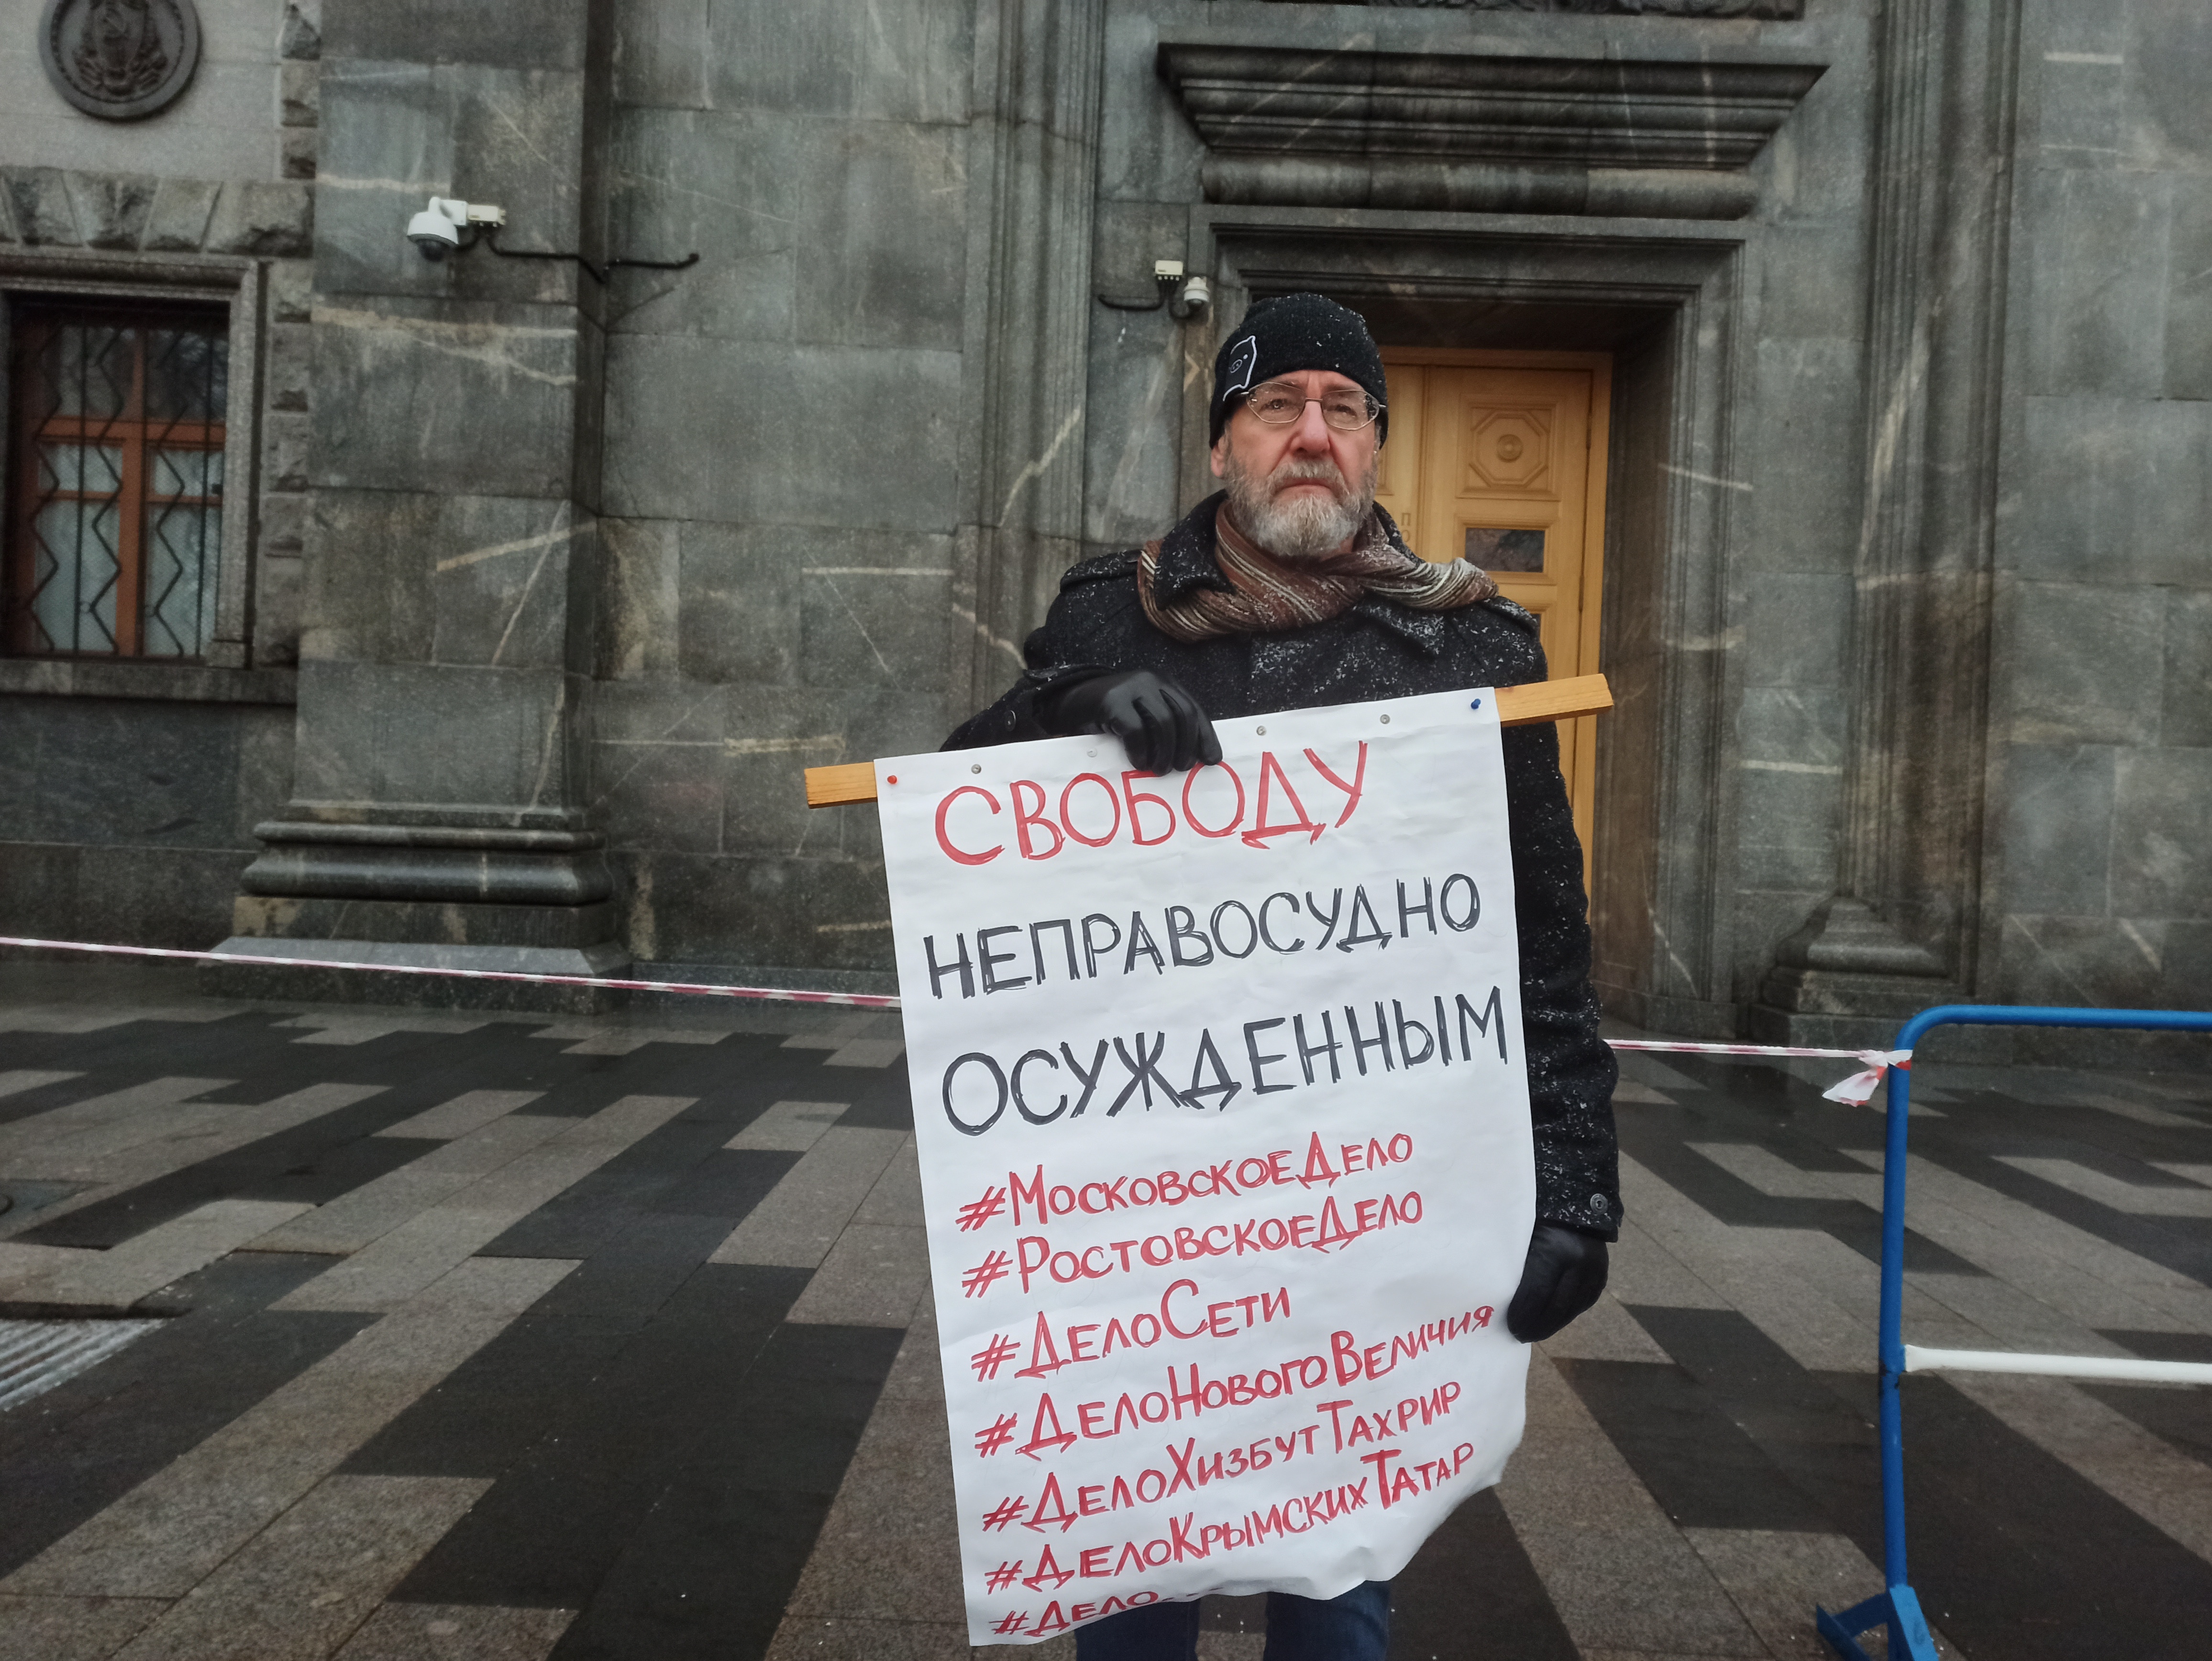 СВОБОДУ
НЕПРАВОСУДНО
ОСУЖДЕННЫМ
#МОСКОВСКОЕДЕЛО
#РОСТОВСКОЕДЕЛО
#ДЕЛОСЕТИ
#ДЕЛОНОВОГОВЕЛИЧИЯ
#ДЕЛОХИЗБУТТАХРИР
#ДЕЛОКРЫМСКИХТАТАР
#ДЕЛО